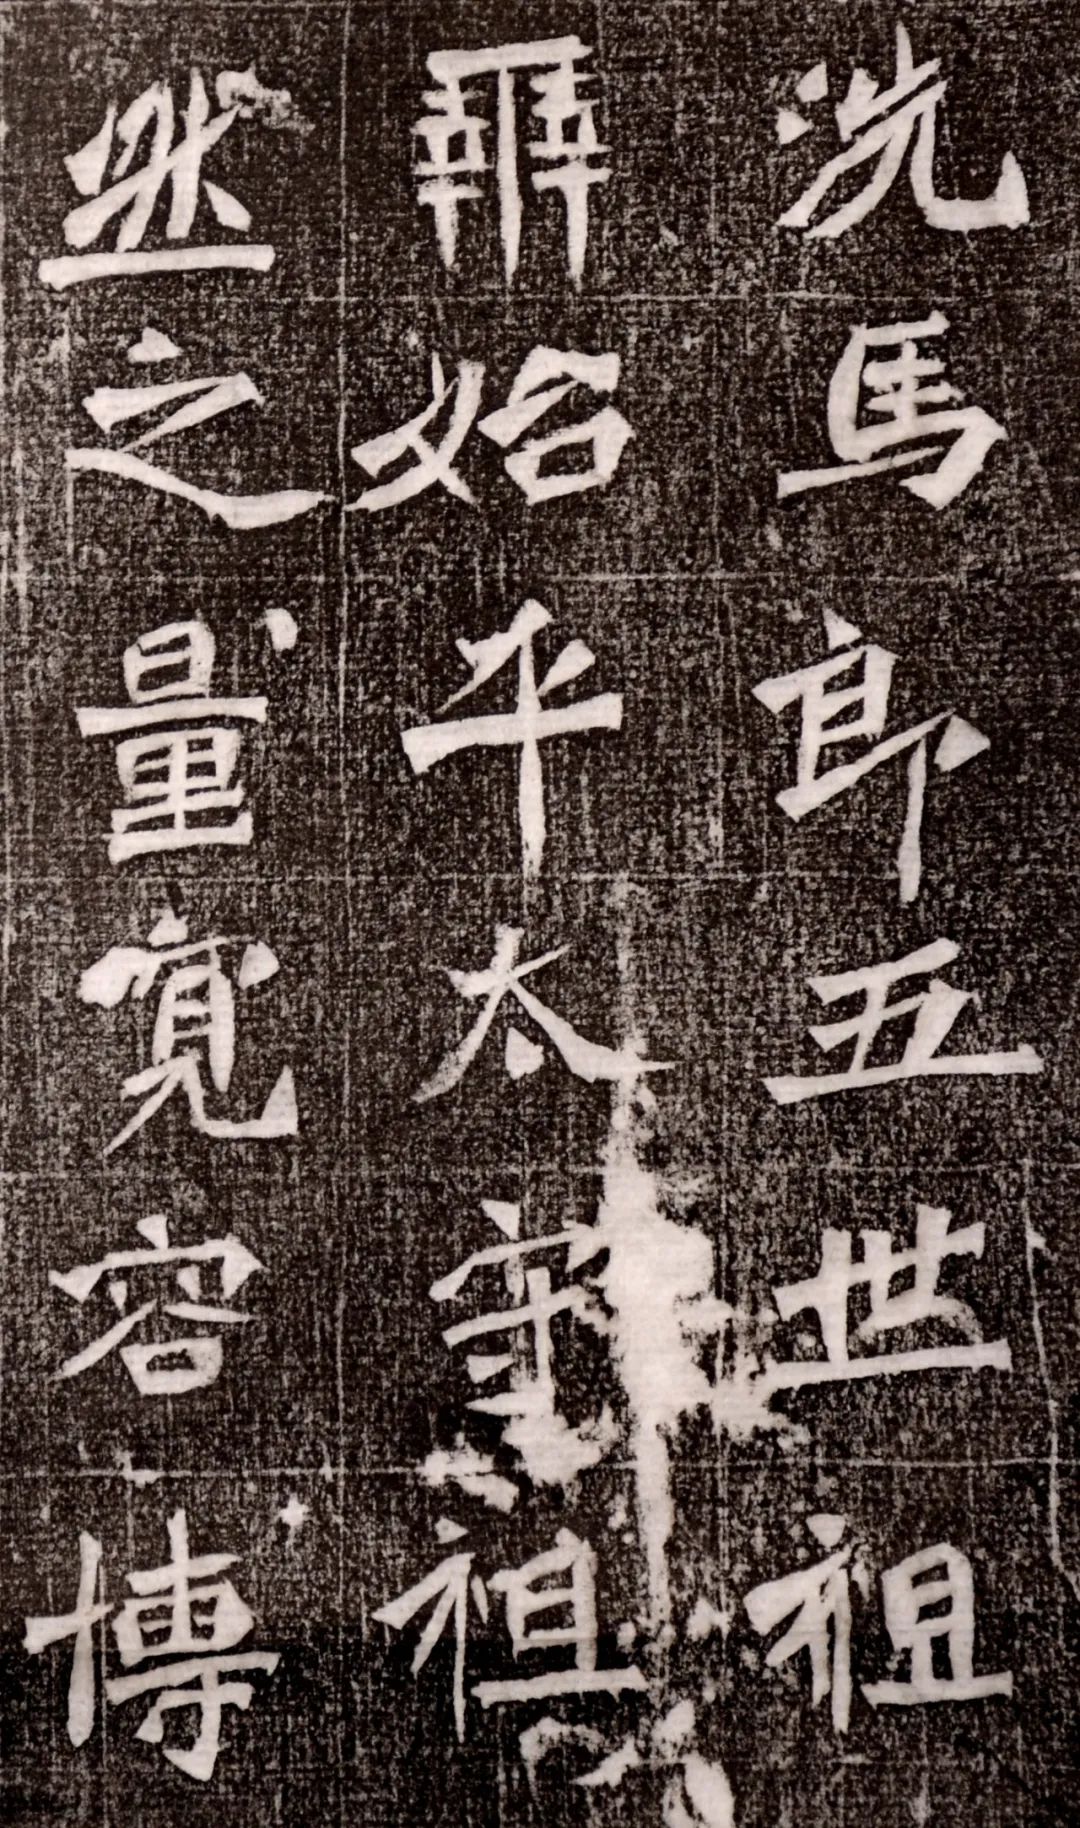 洗馬郎五世祖
始平太守祖
然之量寬容博